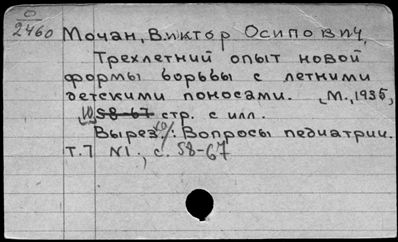 О
2460
Мочан, Виктор Осипович.
Трехлетний опыт новой
формы борьбы с летними
детскими поносами. М., 1935,
10 58-67 стр. с илл.
Вырез.: Вопросы педиатрии.
т.7 N1., с. 58-67